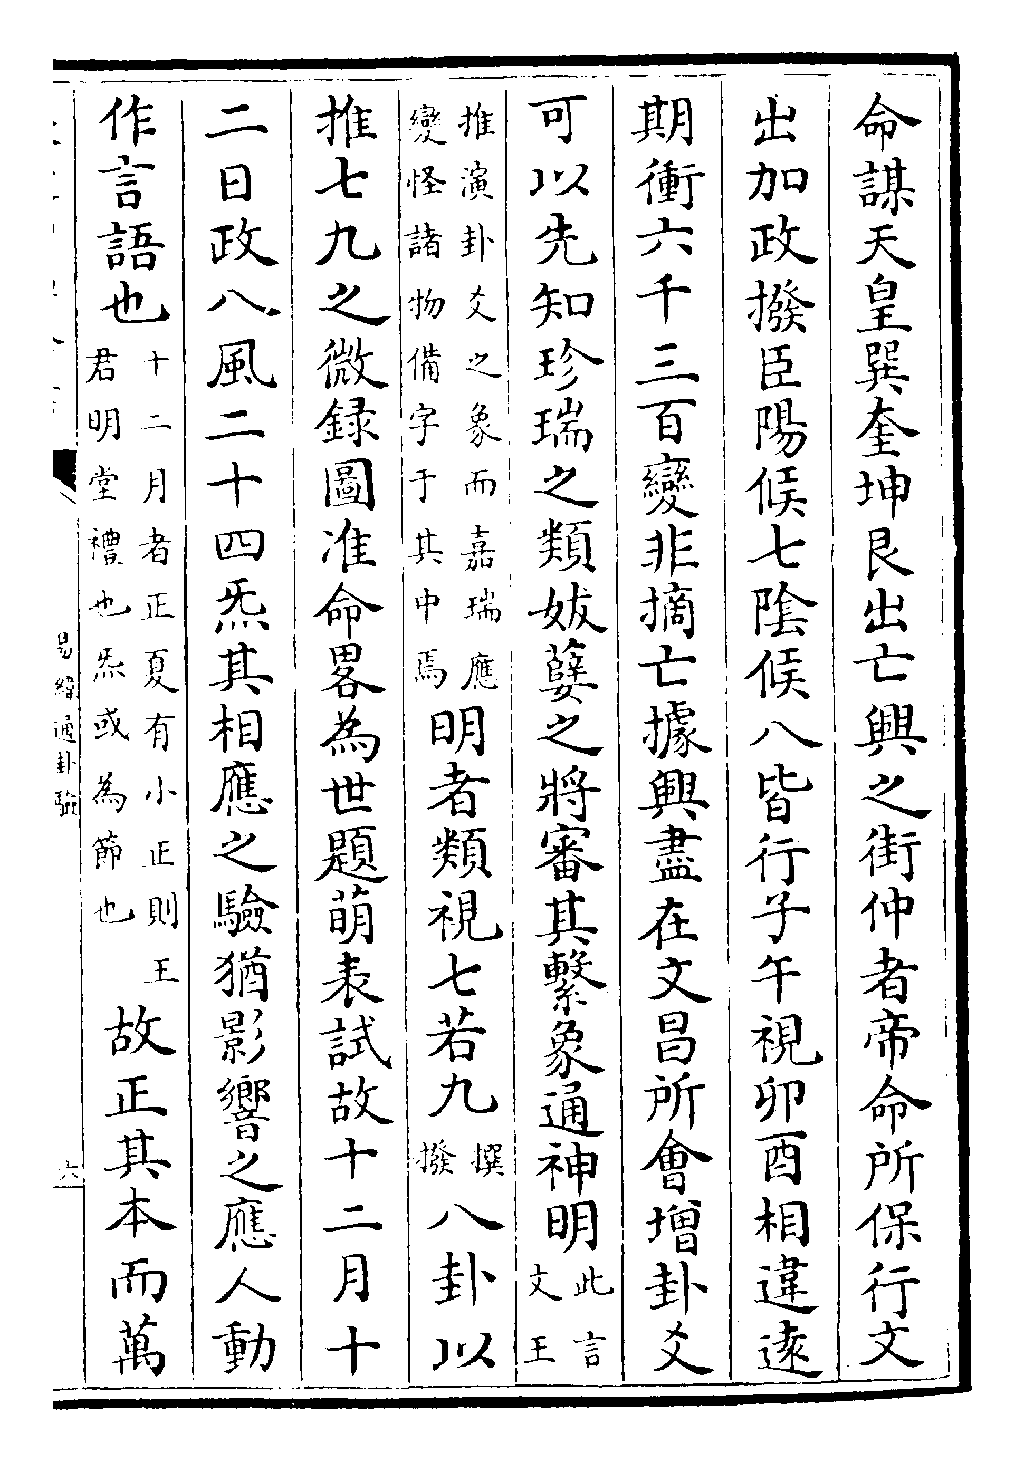 命謀天皇巽奎坤艮出亡興之街仲者帝命所保行文
出加政撥臣陽候七陰候八皆行子午視卯酉相違遠
期衝六千三百變非摘亡據興盡在文昌所會增卦爻
可以先知珍瑞之類妭孽之將審其繫象通神明此言文王
推演卦爻之象而嘉瑞應變怪諸物備字于其中焉明者類視七若九撰撥八卦以
推七九之微録圖准命畧為世題萌表試故十二月十
二日政八風二十四炁其相應之驗猶影響之應人動
作言語也十二月者正夏有小正則王君明堂禮也炁或為節也故正其本而萬
易緯通卦驗
六